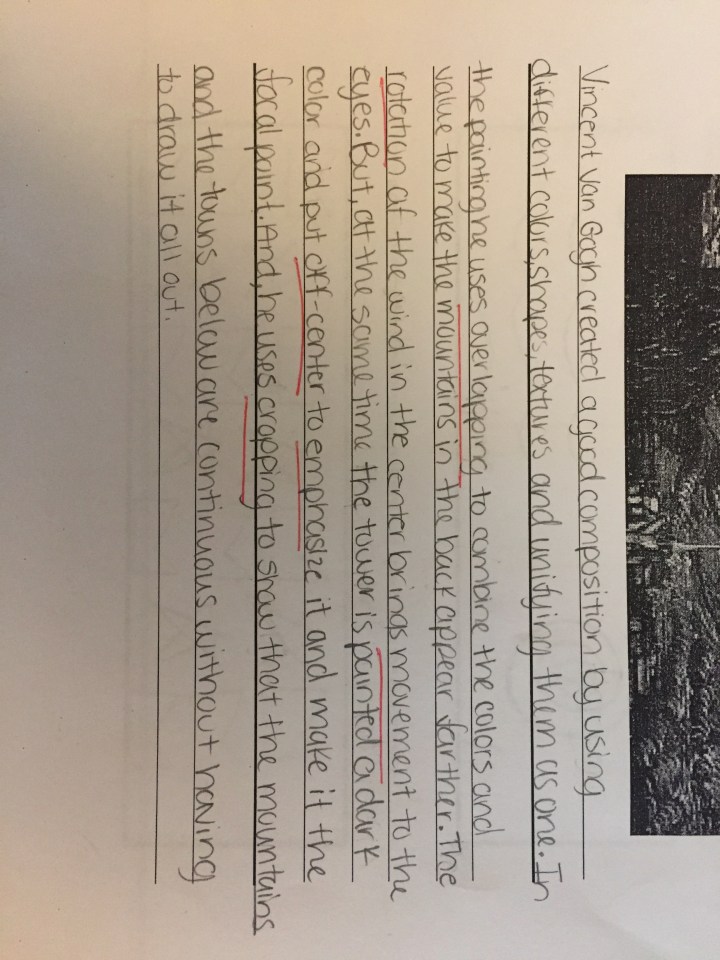 Vincent Van Gogh created a good composition by using
different colors, shapes, textures and unifying them as one. In
the painting he uses overlapping to combine the colors and
value to make the mountains in the back appear farther. The
rotation of the wind in the center brings movement to the
eyes. But, at the same time the tower is painted a dark
color and put off-center to emphasize it and make it the
focal point. And, he uses cropping to show that the mountains
and the towns below are continuous without having
to draw it all out.